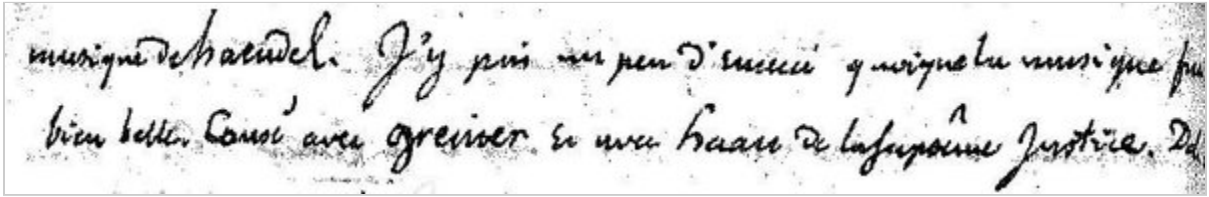 musique de haendel. J'y pris un peu d'ennui quoique la musique fu
bien belle. Causé avec greiner et avec haan de la suprême Justice. Da